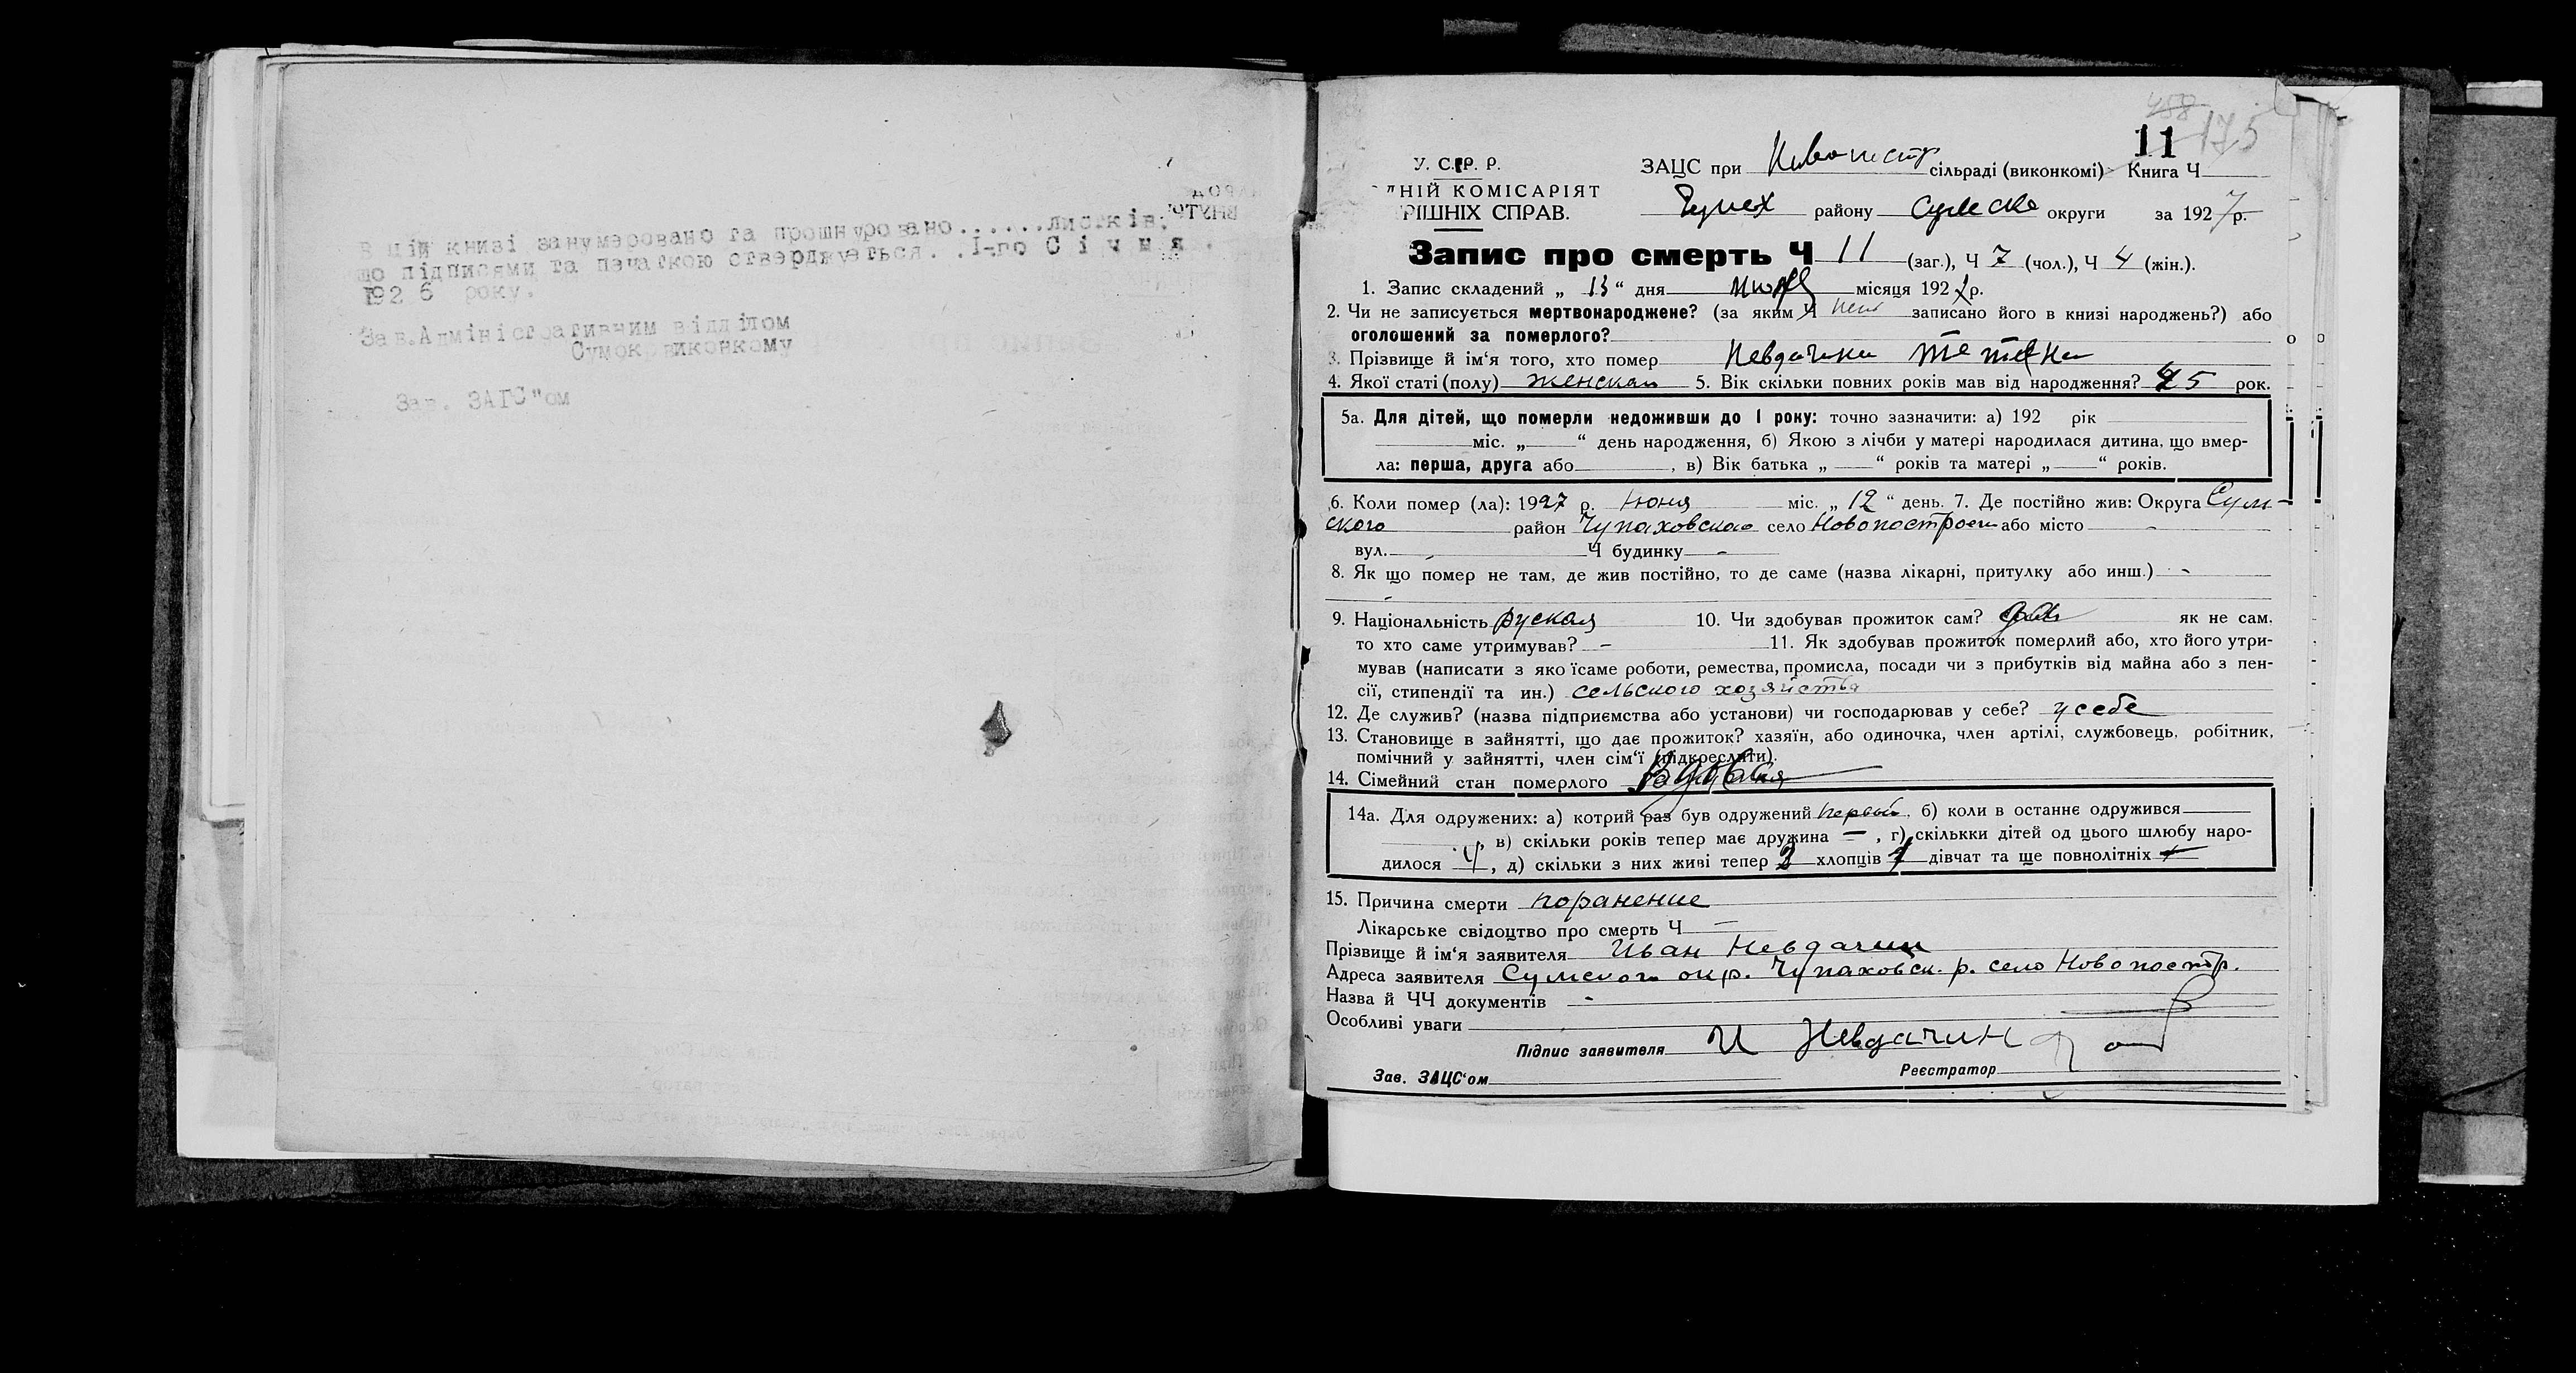 В цій книзі занумеровано та прошнуровано......листків,
що підписями та печаткою стверджується. .І-го Січня.
1926 року.
Зав.Адміністративним відділом
Сумокрвиконкому
Зав. ЗАГС"ом
458
11 175
У. С. Р. Р.
ЗАЦС при Новопостр сільраді (виконкомі) Книга Ч
НІЙ КОМІСАРІЯТ
РІШНІХ СПРАВ.
Чупах району Сумско округи за 1927 р.
Запис про смерть Ч 11 (заг.), Ч 7 (чол.), Ч 4 (жін.).
1. Запис складений „ 13 “ дня июня місяця 192 р.
2. Чи не записується мертвонароджене? (за яким Ч записано його в книзі народжень?) або
оголошений за померлого?
3. Прізвище й ім‘я того, хто помер Невдачина Татяна
4. Якої статі (полу) женская 5. Вік скільки повних років мав від народження? 45 рок.
5а. Для дітей, що померли недоживши до 1 року: точно зазначити: а) 192 рік
міс. „ “ день народження, б) Якою з лічби у матері народилася дитина, що вмер-
ла: перша, друга або , в) Вік батька „ “ років та матері „ “ років.
6. Коли помер (ла): 1927 р. Июня міс. „ 12 “ день. 7. Де постійно жив: Округа Сум-
ского район Чупаховского село Новопостроен або місто -
вул. - Ч будинку -
8. Як що помер не там, де жив постійно, то де саме (назва лікарні, притулку або инш.) -
-
9. Національність руская 10. Чи здобував прожиток сам? як не сам.
то хто саме утримував? - 11. Як здобував прожиток померлий або, хто його утри-
мував (написати з яко їсаме роботи, ремества, промисла, посади чи з прибутків від майна або з пен-
сії, стипендії та ин.) сельского хозяйства
12. Де служив? (назва підприємства або установи) чи господарював у себе? у себе
13. Становище в зайнятті, що дає прожиток? хазяїн, або одиночка, член артілі, службовець, робітник,
помічний у зайнятті, член сім‘ї (підкреслити).
14. Сімейний стан померлого
14а. Для одружених: а) котрий раз був одружений первый, б) коли в останнє одружився
, в) скільки років тепер має дружина — , г) скількки дітей од цього шлюбу наро-
дилося 4, д) скільки з них живі тепер 2 хлопців 1 дівчат та ще повнолітніх
15. Причина смерти поранение
Лікарське свідоцтво про смерть Ч —
Прізвище й ім‘я заявителя Иван Невдачин
Адреса заявителя Сумского окр. Чупаховск. р. село Новопостр.
Назва й ЧЧ документів -
Особливі уваги
Підпис заявителя И Невдачин
Зав. ЗАЦС‘ом Реєстратор